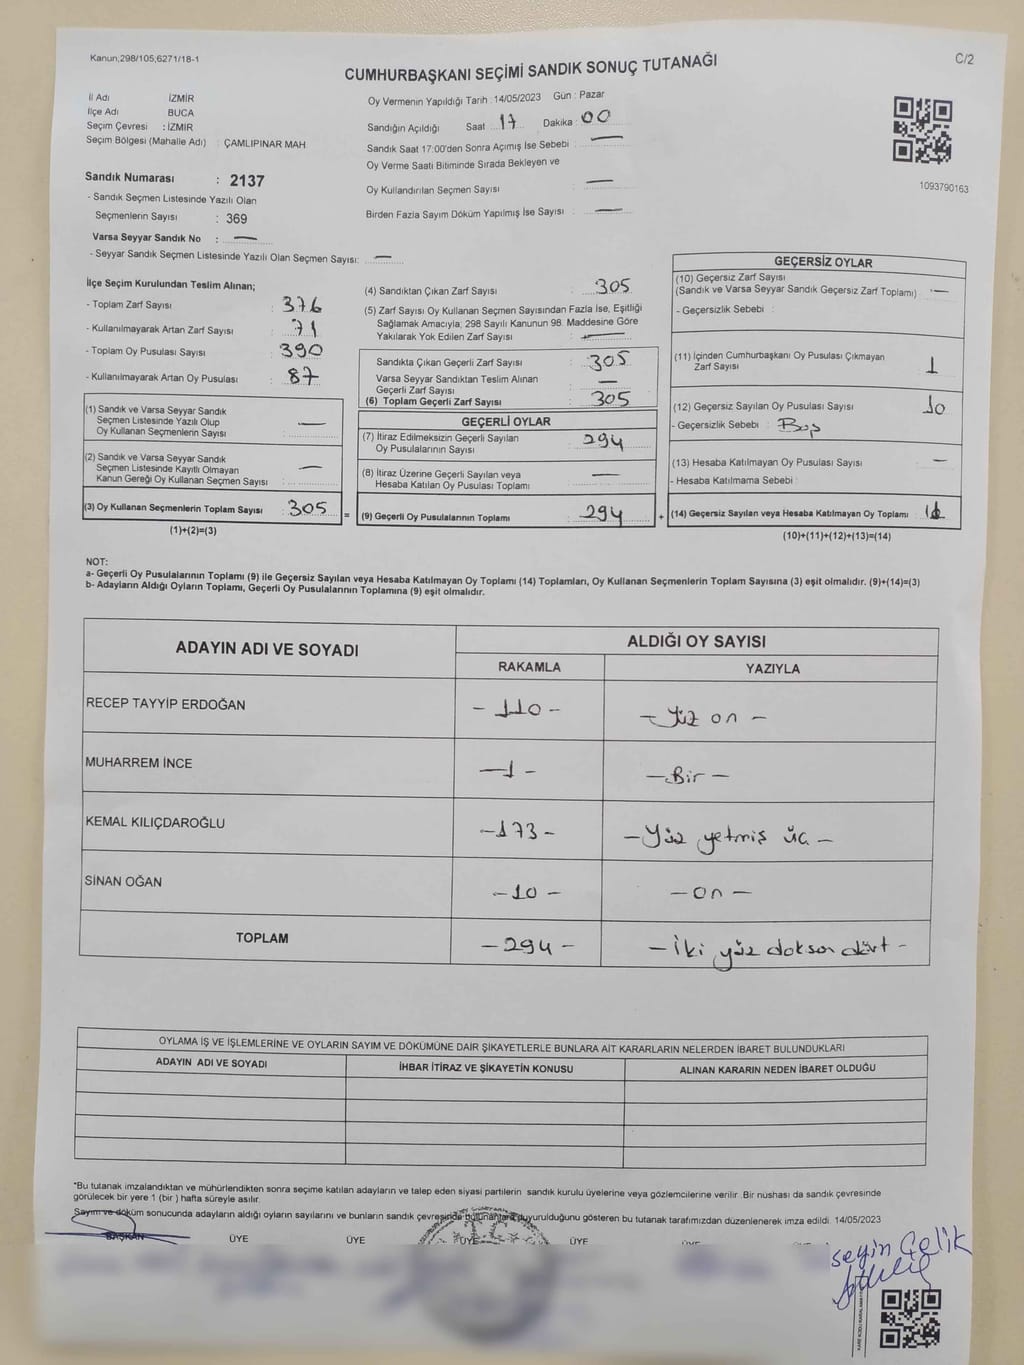 Kanun;298/105,6271/18-1
C/2
CUMHURBAŞKANI SEÇİMİ SANDIK SONUÇ TUTANAĞI
İl Adı İZMİR
İlçe Adı BUCA
Seçim Çevresi : İZMİR
Seçim Bölgesi (Mahalle Adı) : ÇAMLIPINAR MAH
Sandık Numarası : 2137
- Sandık Seçmen Listesinde Yazılı Olan
Seçmenlerin Sayısı : 369
Varsa Seyyar Sandık No : —
- Seyyar Sandık Seçmen Listesinde Yazılı Olan Seçmen Sayısı: —
Oy Vermenin Yapıldığı Tarih : 14/05/2023 Gün : Pazar
Sandığın Açıldığı Saat : 17 Dakika : 00
Sandık Saat 17:00'den Sonra Açımış İse Sebebi : —
Oy Verme Saati Bitiminde Sırada Bekleyen ve
Oy Kullandırılan Seçmen Sayısı : —
Birden Fazla Sayım Döküm Yapılmış İse Sayısı : —
1093790163
İlçe Seçim Kurulundan Teslim Alınan;
- Toplam Zarf Sayısı : 376
- Kullanılmayarak Artan Zarf Sayısı : 71
- Toplam Oy Pusulası Sayısı : 390
- Kullanılmayarak Artan Oy Pusulası : 87
(1) Sandık ve Varsa Seyyar Sandık
Seçmen Listesinde Yazılı Olup
Oy Kullanan Seçmenlerin Sayısı : —
(2) Sandık ve Varsa Seyyar Sandık
Seçmen Listesinde Kayıtlı Olmayan
Kanun Gereği Oy Kullanan Seçmen Sayısı : —
(3) Oy Kullanan Seçmenlerin Toplam Sayısı : 305 =
(1)+(2)=(3)
(4) Sandıktan Çıkan Zarf Sayısı : 305
(5) Zarf Sayısı Oy Kullanan Seçmen Sayısından Fazla İse, Eşitliği
Sağlamak Amacıyla; 298 Sayılı Kanunun 98. Maddesine Göre
Yakılarak Yok Edilen Zarf Sayısı : —
Sandıkta Çıkan Geçerli Zarf Sayısı : 305
Varsa Seyyar Sandıktan Teslim Alınan
Geçerli Zarf Sayısı : —
(6) Toplam Geçerli Zarf Sayısı : 305
GEÇERLİ OYLAR
(7) İtiraz Edilmeksizin Geçerli Sayılan
Oy Pusulalarının Sayısı : 294
(8) İtiraz Üzerine Geçerli Sayılan veya
Hesaba Katılan Oy Pusulası Toplamı : —
(9) Geçerli Oy Pusulalarının Toplamı : 294 +
GEÇERSİZ OYLAR
(10) Geçersiz Zarf Sayısı
(Sandık ve Varsa Seyyar Sandık Geçersiz Zarf Toplamı) : —
- Geçersizlik Sebebi :
(11) İçinden Cumhurbaşkanı Oy Pusulası Çıkmayan
Zarf Sayısı : 1
(12) Geçersiz Sayılan Oy Pusulası Sayısı : 10
- Geçersizlik Sebebi : Boş
(13) Hesaba Katılmayan Oy Pusulası Sayısı : —
- Hesaba Katılmama Sebebi :
(14) Geçersiz Sayılan veya Hesaba Katılmayan Oy Toplamı : 11
(10)+(11)+(12)+(13)=(14)
NOT:
a- Geçerli Oy Pusulalarının Toplamı (9) ile Geçersiz Sayılan veya Hesaba Katılmayan Oy Toplamı (14) Toplamları, Oy Kullanan Seçmenlerin Toplam Sayısına (3) eşit olmalıdır. (9)+(14)=(3)
b- Adayların Aldığı Oyların Toplamı, Geçerli Oy Pusulalarının Toplamına (9) eşit olmalıdır.
ADAYIN ADI VE SOYADI
ALDIĞI OY SAYISI
RAKAMLA YAZIYLA
RECEP TAYYİP ERDOĞAN - 110 - - Yüz on -
MUHARREM İNCE - 1 - - Bir -
KEMAL KILIÇDAROĞLU - 173 - - Yüz yetmiş üç -
SİNAN OĞAN - 10 - - on -
TOPLAM - 294 - - İki yüz doksan dört -
OYLAMA İŞ VE İŞLEMLERİNE VE OYLARIN SAYIM VE DÖKÜMÜNE DAİR ŞİKAYETLERLE BUNLARA AİT KARARLARIN NELERDEN İBARET BULUNDUKLARI
ADAYIN ADI VE SOYADI İHBAR İTİRAZ VE ŞİKAYETİN KONUSU ALINAN KARARIN NEDEN İBARET OLDUĞU
"Bu tutanak imzalandıktan ve mühürlendikten sonra seçime katılan adayların ve talep eden siyasi partilerin sandık kurulu üyelerine veya gözlemcilerine verilir. Bir nüshası da sandık çevresinde
görülecek bir yere 1 (bir ) hafta süreyle asılır.
Sayım ve döküm sonucunda adayların aldığı oyların sayılarını ve bunların sandık çevresinde bulunanlara duyurulduğunu gösteren bu tutanak tarafımızdan düzenlenerek imza edildi. 14/05/2023
BAŞKAN ÜYE ÜYE ÜYE ÜYE
seyin Çelik